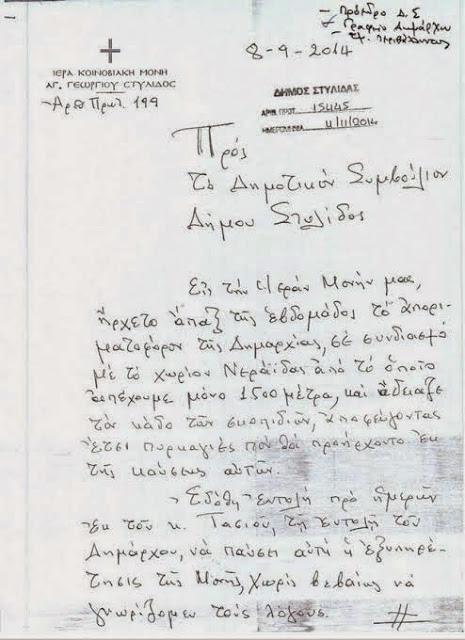 - Πρόεδρο Δ.Σ
- Γραφείο Δημάρχου
8-9-2014
ΙΕΡΑ ΚΟΙΝΟΒΙΑΚΗ ΜΟΝΗ
ΑΓ. ΓΕΩΡΓΙΟΥ ΣΤΥΛΙΔΟΣ
Αριθ Πρωτ. 199
ΔΗΜΟΣ ΣΤΥΛΙΔΑΣ
ΑΡΙΘ. ΠΡΩΤ. 15445
ΗΜΕΡΟΜΗΝΙΑ 4/11/2014
Πρός
τό Δημοτικόν Συμβούλιον
Δήμου Στυλίδος
Εἰς τήν Ἱεράν Μονήν μας,
ἤρχετο ἅπαξ τῆς ἑβδομάδος τό ἀπορι-
ματοφόρον τῆς Δημαρχίας, σέ συνδιασμό
μέ τό χωρίον Νεράιδας ἀπό τό ὁποῖο
ἀπέχουμε μόνο 1500 μέτρα, καί ἄδειαζε
τόν κάδο τῶν σκουπιδιῶν, ἀποφεύγοντας
ἔτσι πυρκαγιές πού θά προήρχοντο ἐκ
τῆς καύσεως αὐτῶν.
Ἐδόθη ἐντολή πρό ἡμερῶν
ἐκ τοῦ κ. Τασιού, τῇ ἐντολῇ τοῦ
Δημάρχου, νά παύσει αὐτή ἡ ἐξυπηρέ-
τησις τῆς Μονῆς, χωρίς βεβαίως νά
γνωρίζομεν τούς λόγους.